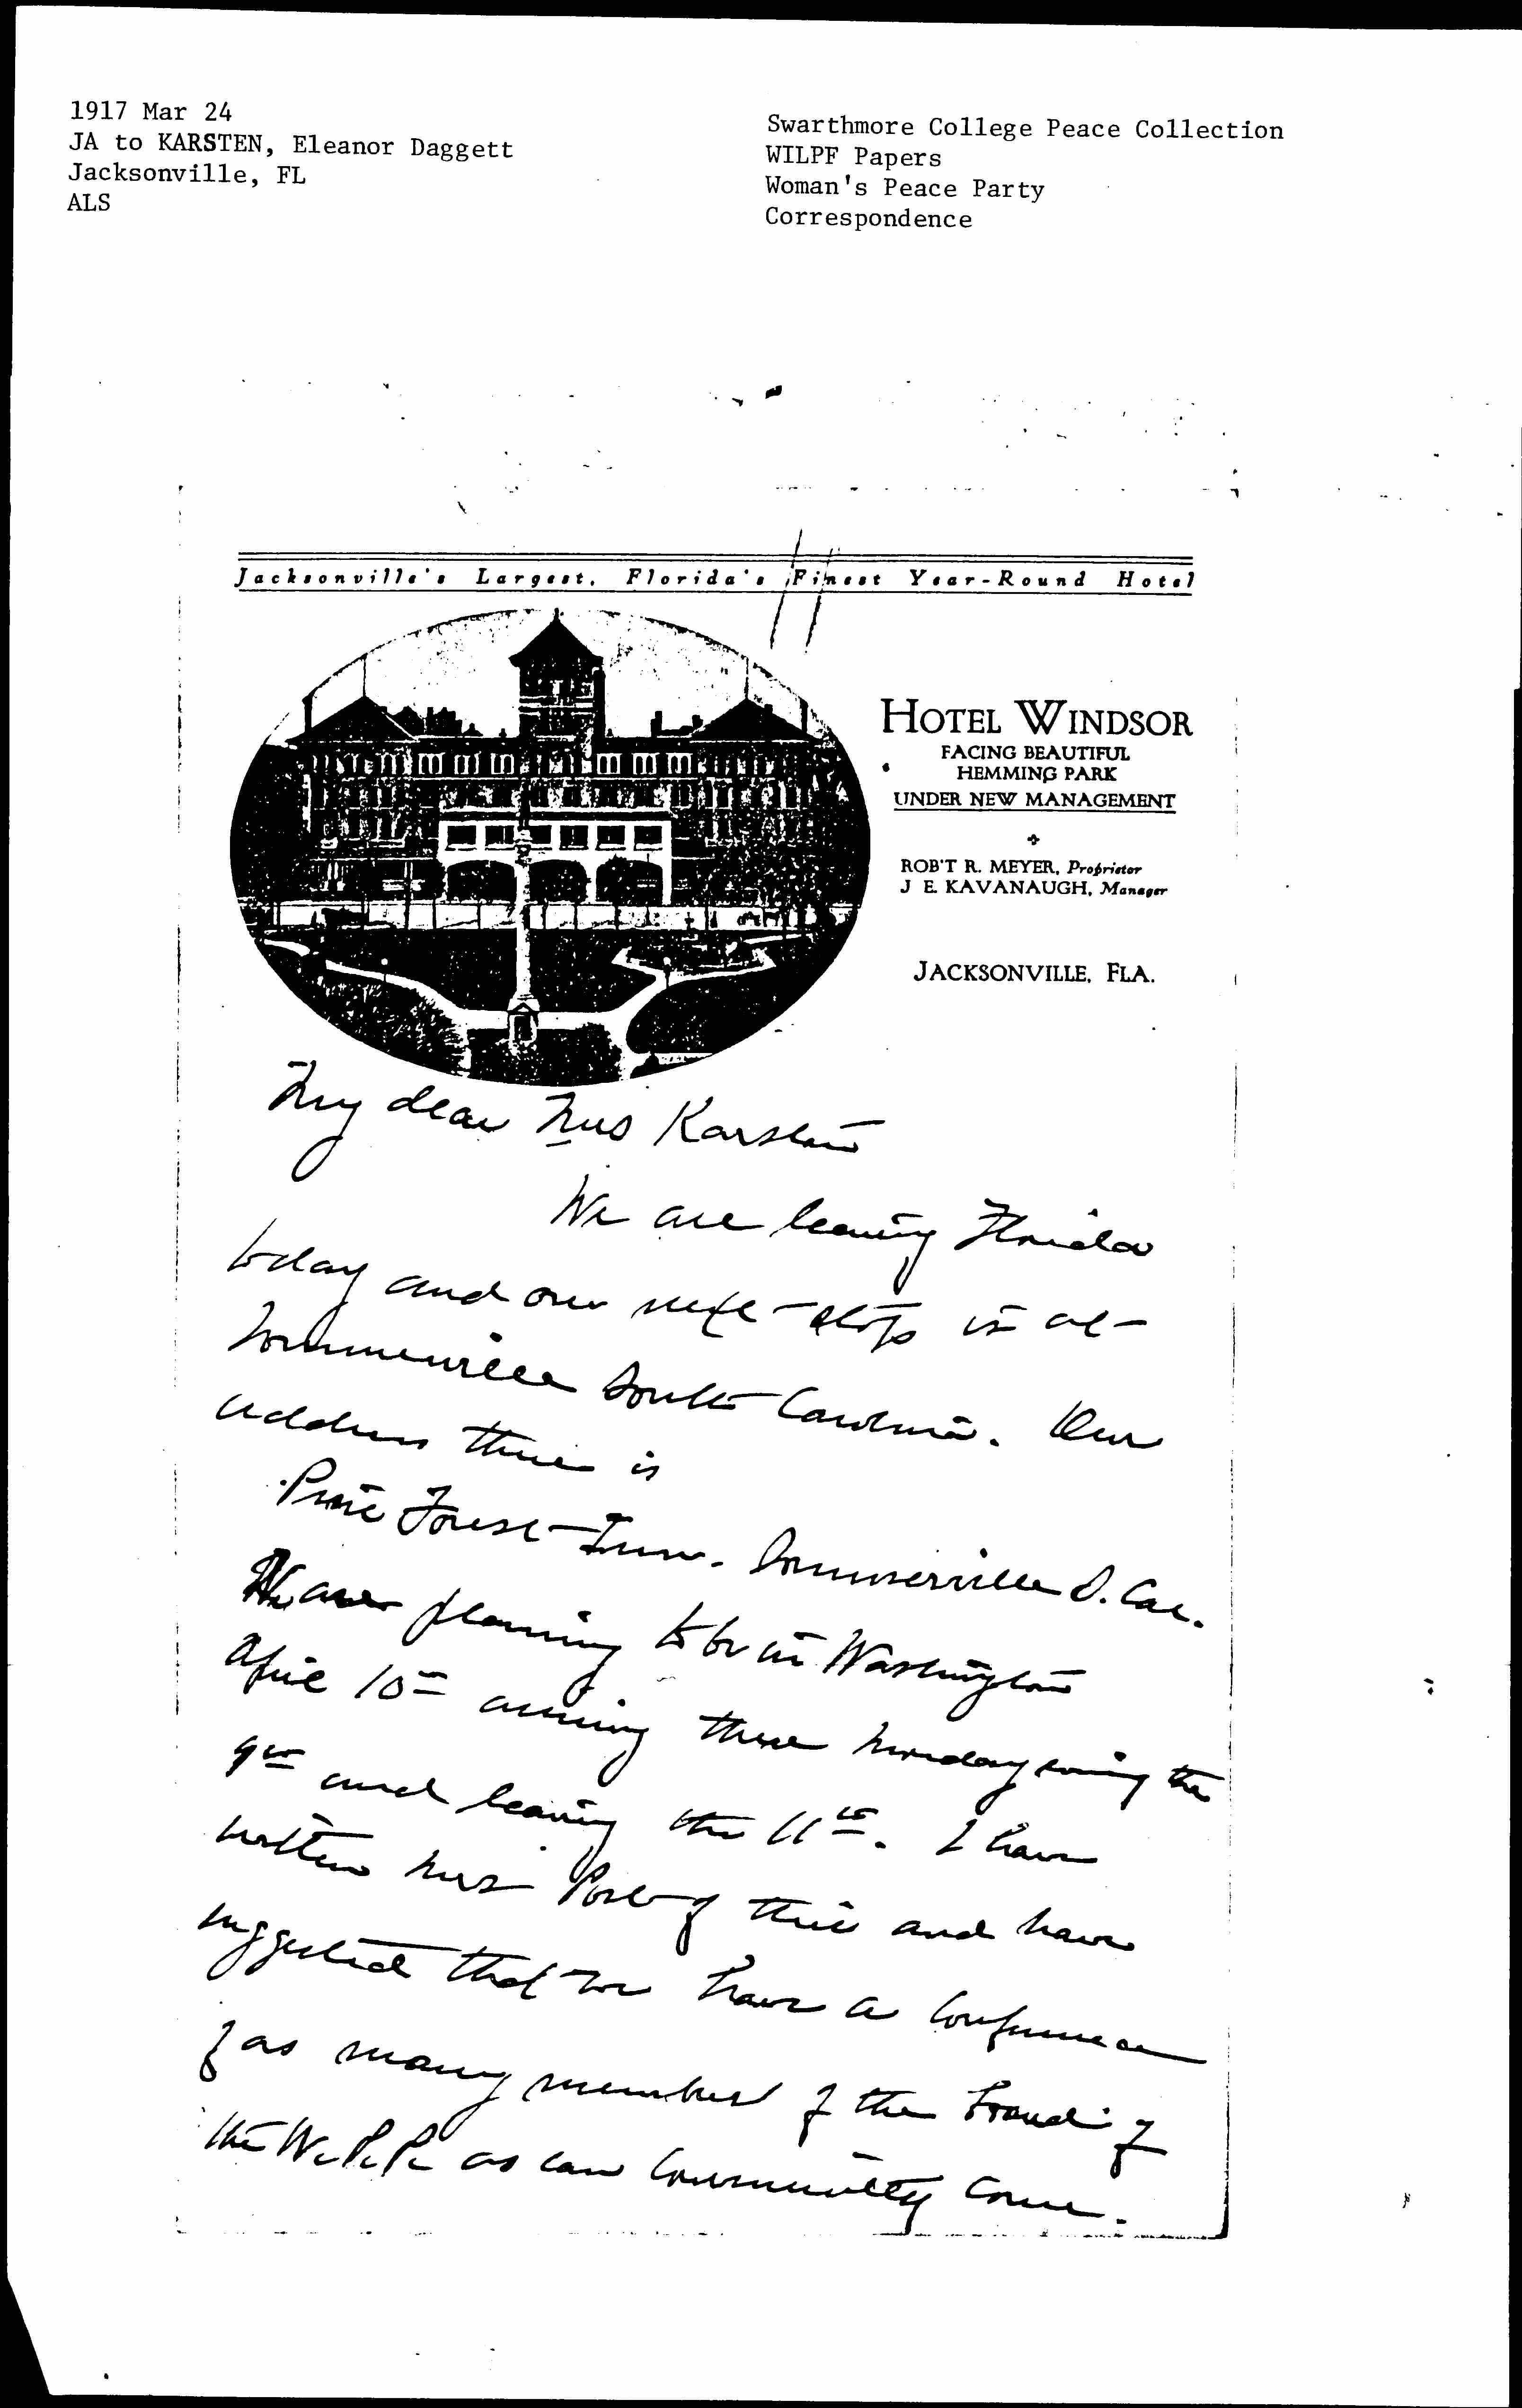 1917 Mar 24
JA to KARSTEN, Eleanor Daggett
Jacksonville, FL
ALS
Swarthmore College Peace Collection
WILPF Papers
Woman's Peace Party
Correspondence
Jacksonville's Largest, Florida's Finest Year-Round Hotel
HOTEL WINDSOR
FACING BEAUTIFUL
HEMMING PARK
UNDER NEW MANAGEMENT
ROB'T R. MEYER, Proprietor
J E. KAVANAUGH, Manager
JACKSONVILLE, FLA.
My dear Mrs Karsten
We are leaving Florida
today and our next stop is at
Summerville South Carolina. Our
address there is
Pine Forest Inn. Summerville S. Car.
We are planning to be in Washington
April 10th arriving there Monday evening the
9th and leaving the 11th. I have
written Mrs Post of this and have
suggested that we have a conference
of as many members of the Board of
the W. P. P. as can come.